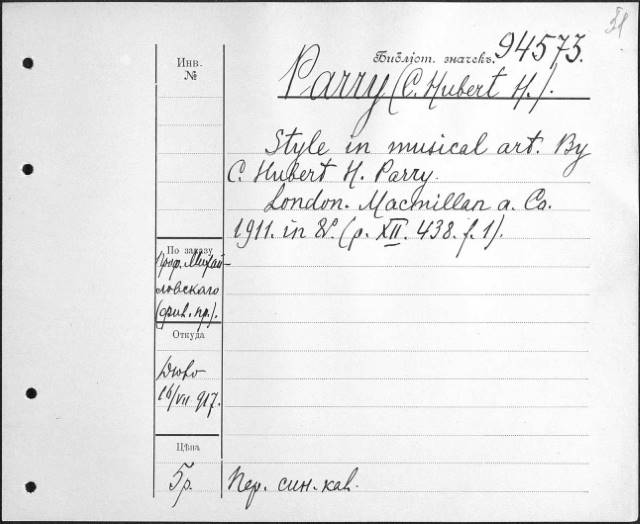 51
Инв.
№
Библіот. значекъ. 94573.
Parry (C. Hubert H.).
Style in musical art. By
C. Hubert H. Parry.
London. Macmillan a. Co.
1911. in 8°. (p. XII. 438. f. 1).
По заказу
Проф. Михай-
ловскаго
(фив. пр.).
Откуда
Дюво
16/VII 917.
Цѣна
5 р.
Пер. син. кал.